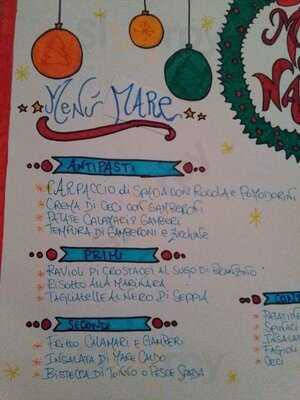 Menù Mare
ANTIPASTI
CARPACCIO di SPADA CON RUCOLA E POMODORINI
CREMA DI CECI CON GAMBERONI
PATATE CALAMARI E GAMBERI
TEMPURA DI GAMBERONI E ZUCCHINE
PRIMI
RAVIOLI DI CROSTACEI AL SUGO DI BRANZINO
RISOTTO ALLA MARINARA
TAGLIATELLE AL NERO DI SEPPIA
SECONDI
FRITTO CALAMARI E GAMBERI
INSALATA DI MARE CALDO
BISTECCA DI TONNO O PESCE SPADA
M
NA
CON
PATATINE
SPINACI
INSALA
FAGIOLI
CECI